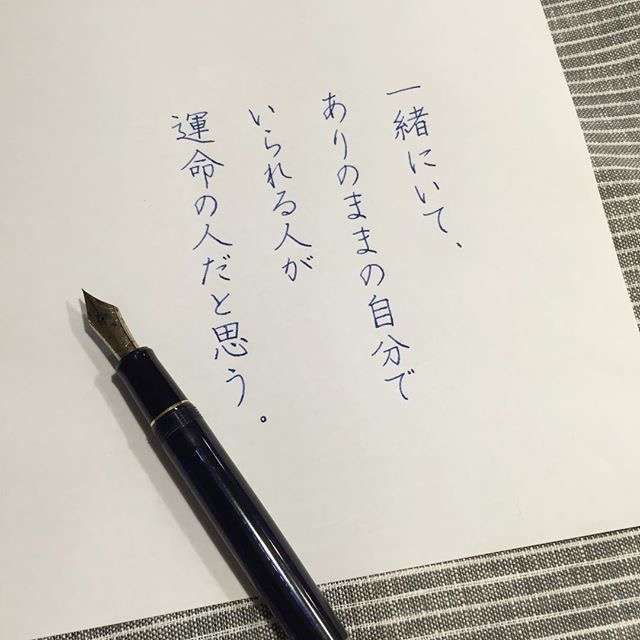 一緒にいて、
ありのままの自分で
いられる人が
運命の人だと思う。